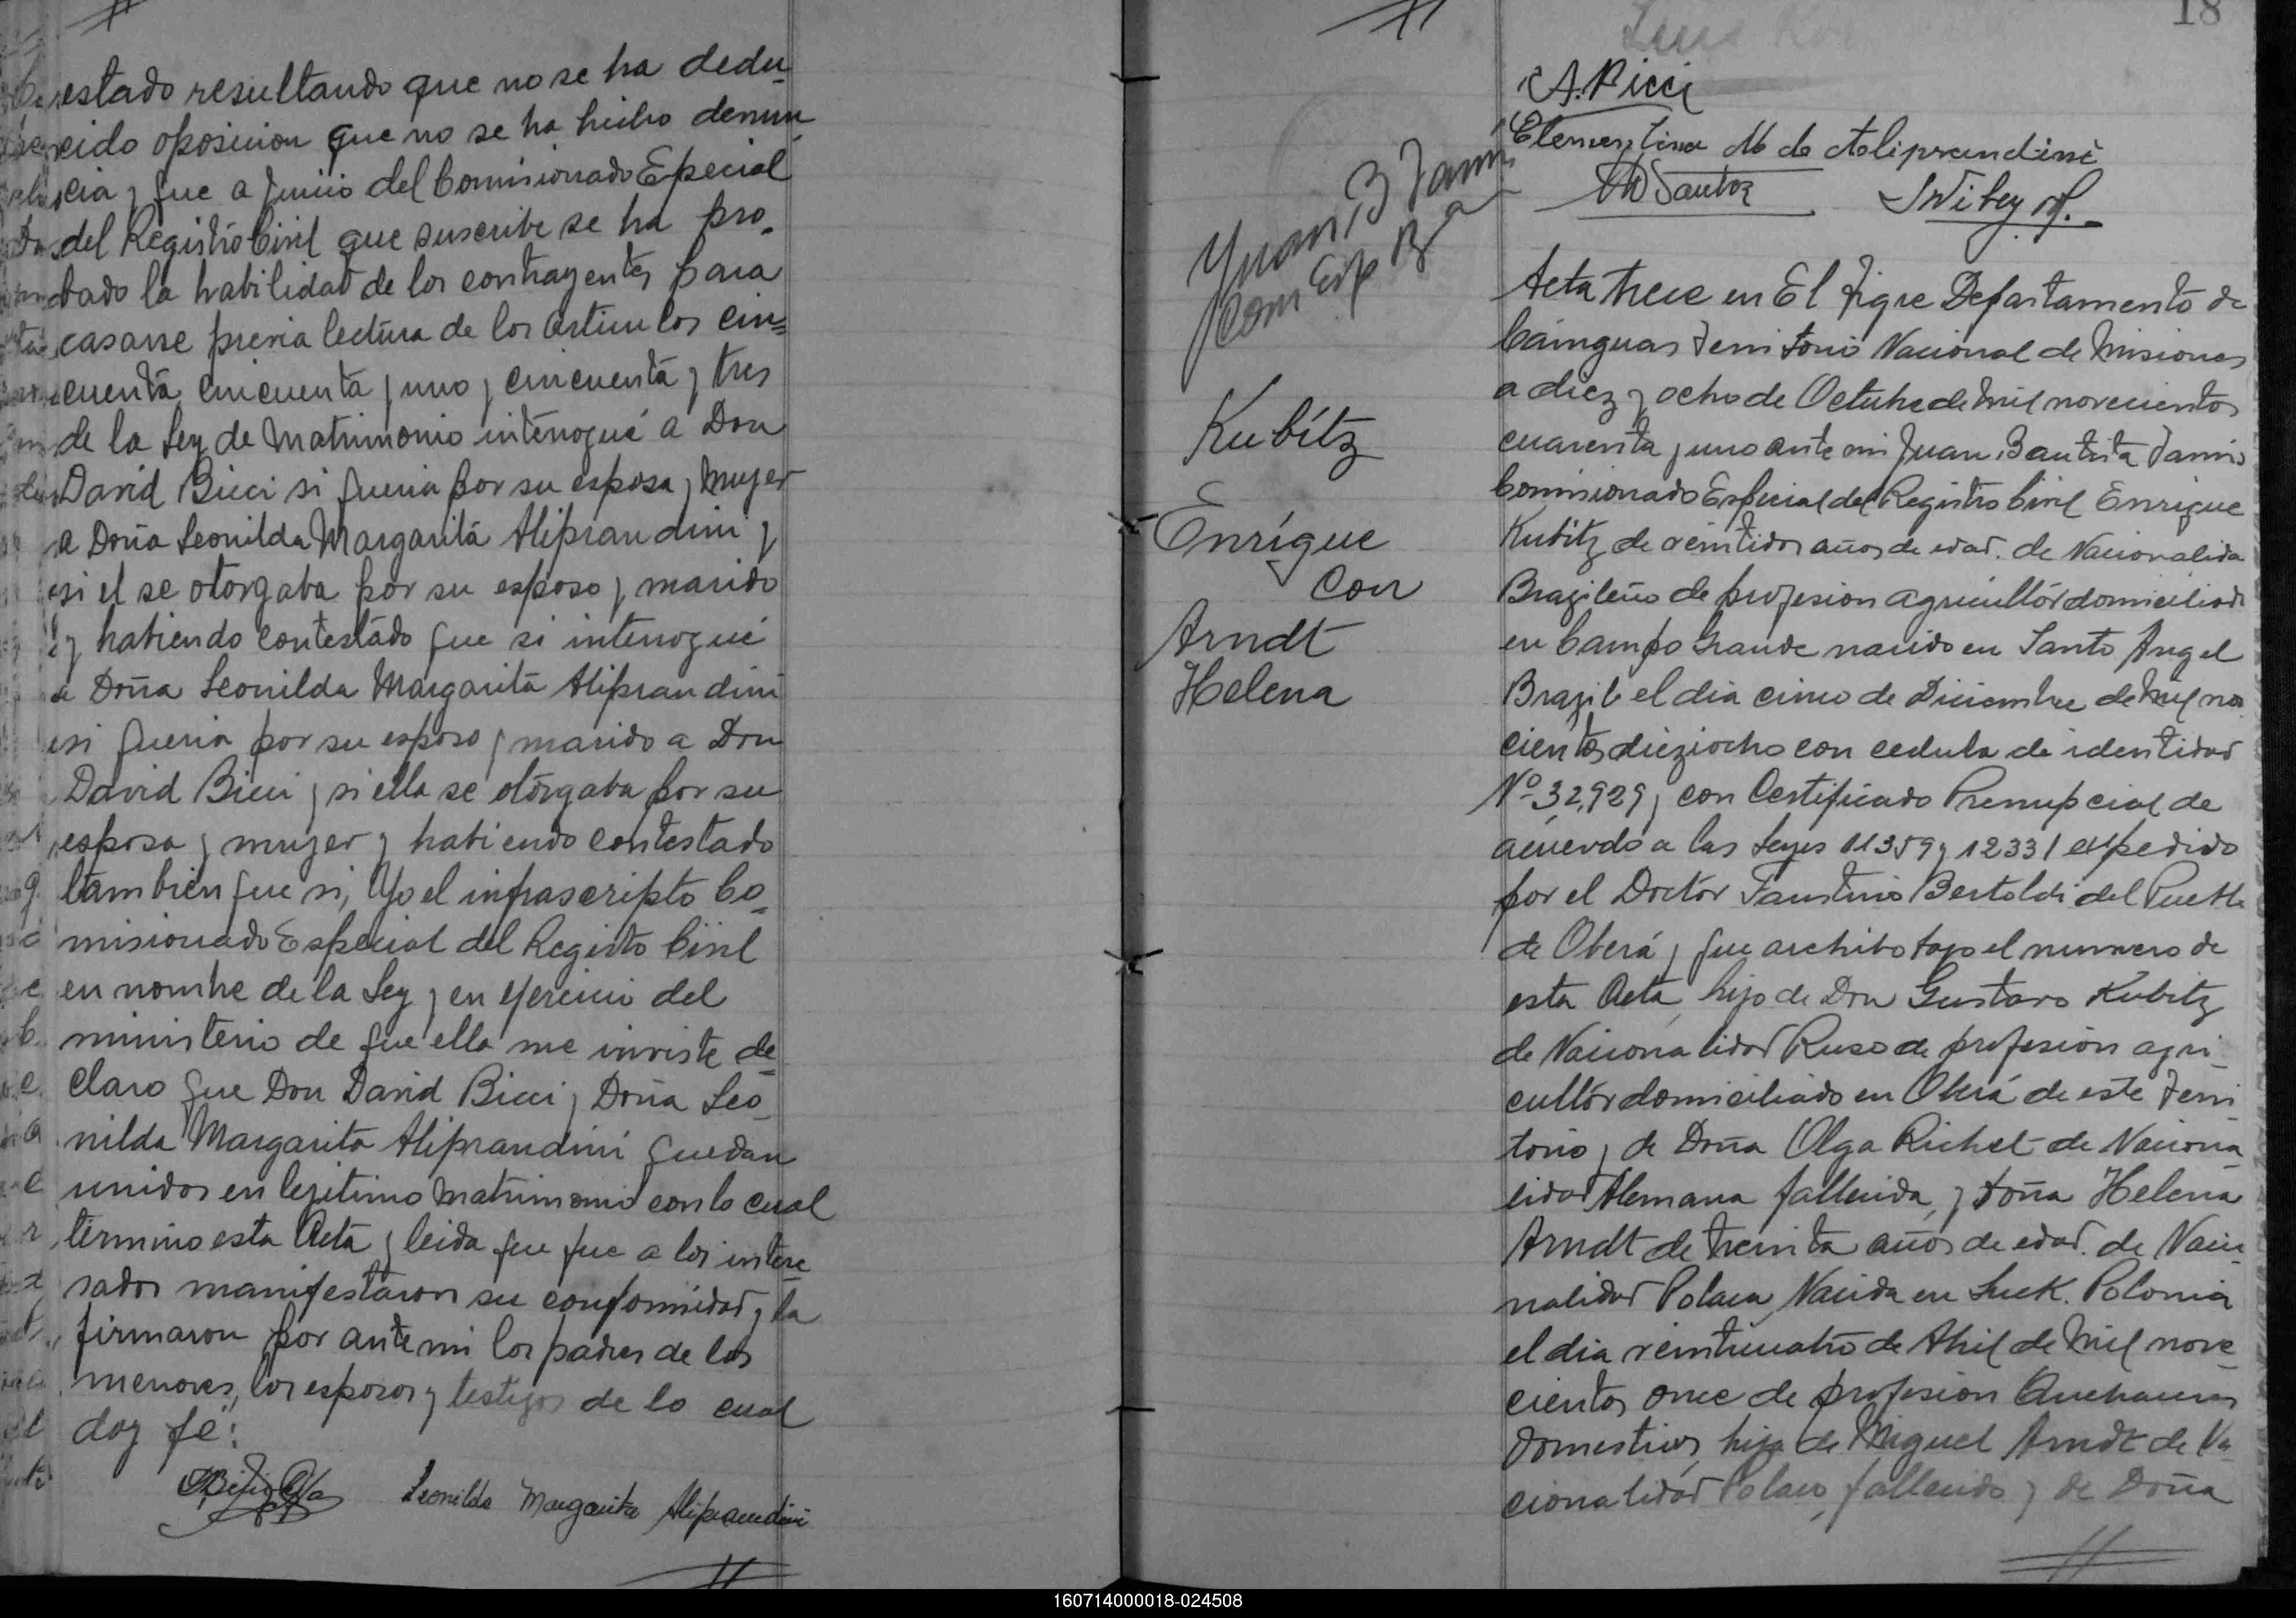 estado resultando que no se ha dedu_
cido oposicion que no se ha hecho denun_
cia y que a juicio del Comisionado Especial
del Registro Civil que suscribe se ha pro_
bado la habilidad de los contrayentes para
casarse previa lectura de los articulos cin=
cuenta cincuenta y uno y cincuenta y tres
de la Ley de Matrimonio interrogué a Don
David Bicci si queria por su esposa y mujer
a Doña Leonilda Margarita Aliprandini y
si el se otorgaba por su esposo y marido
y habiendo contestado que si interrogué
a Doña Leonilda Margarita Aliprandini
si queria por su esposo y marido a Don
David Bicci y si ella se otorgaba por su
esposa y mujer y habiendo contestado
tambien que si, Yo el infrascripto Co_
misionado Especial del Registo Civil
en nombre de la Ley y en ejercicio del
ministerio de que ella me inviste de_
claro que Don David Bicci y Doña Leo_
nilda Margarita Aliprandini quedan
unidos en lejitimo Matrimonio con lo cual
termino esta Acta y leida que fue a los intere_
sados manifestaron su conformidad y la
firmaron por ante mi los padres de los
menores, los esposos y testigos de lo cual
doy fe:
Leonilda Margarita Aliprandini
18
A. Ricci
Clementina M de Aliprandini
Santoz
Juan B Janni
Com Esp
Kubítz
Enríque
con
Arndt
Helena
Acta trece en El Tigre Departamento de
Cainguas Territorio Nacional de Misiones
a diez y ocho de Octubre de Mil novecientos
cuarenta y uno ante mi Juan Bautista Janni
Comisionado Especial del Registro Civil Enrique
Kubitz de veintidos años de edad. de Nacionalida
Brazileño de profesion agricultór domiciliado
en Campo Grande nacido en Santo Angel
Brazil el dia cinco de Diciembre de Mil no
cientos dieziocho con cedula de identidad
Nº 32,929 y con Certificado Prenupcial de
acuerdo a las Leyes 11359 y 12331 expedido
por el Doctór Faustino Bertoldi del Pueblo
de Oberá y que archibo bajo el numero de
esta Acta, hijo de Don Gustavo Kubitz
de Nacionalidad Ruso de profesion agri_
cultór domiciliado en Oberá de este Terri
torio y de Doña Olga Richet de Naciona_
lidad Alemana fallecida, y Doña Helena
Arndt de treinta años de edad. de Nacio_
nalidad Polaca Nacida en Luck. Polonia
el dia veinticuatro de Abril de Mil nove_
cientos once de profesion Quehaceres
Domesticos, hija de Miguel Arndt de Na_
cionalidad Polaco, fallecido y de Doña
160714000018-024508